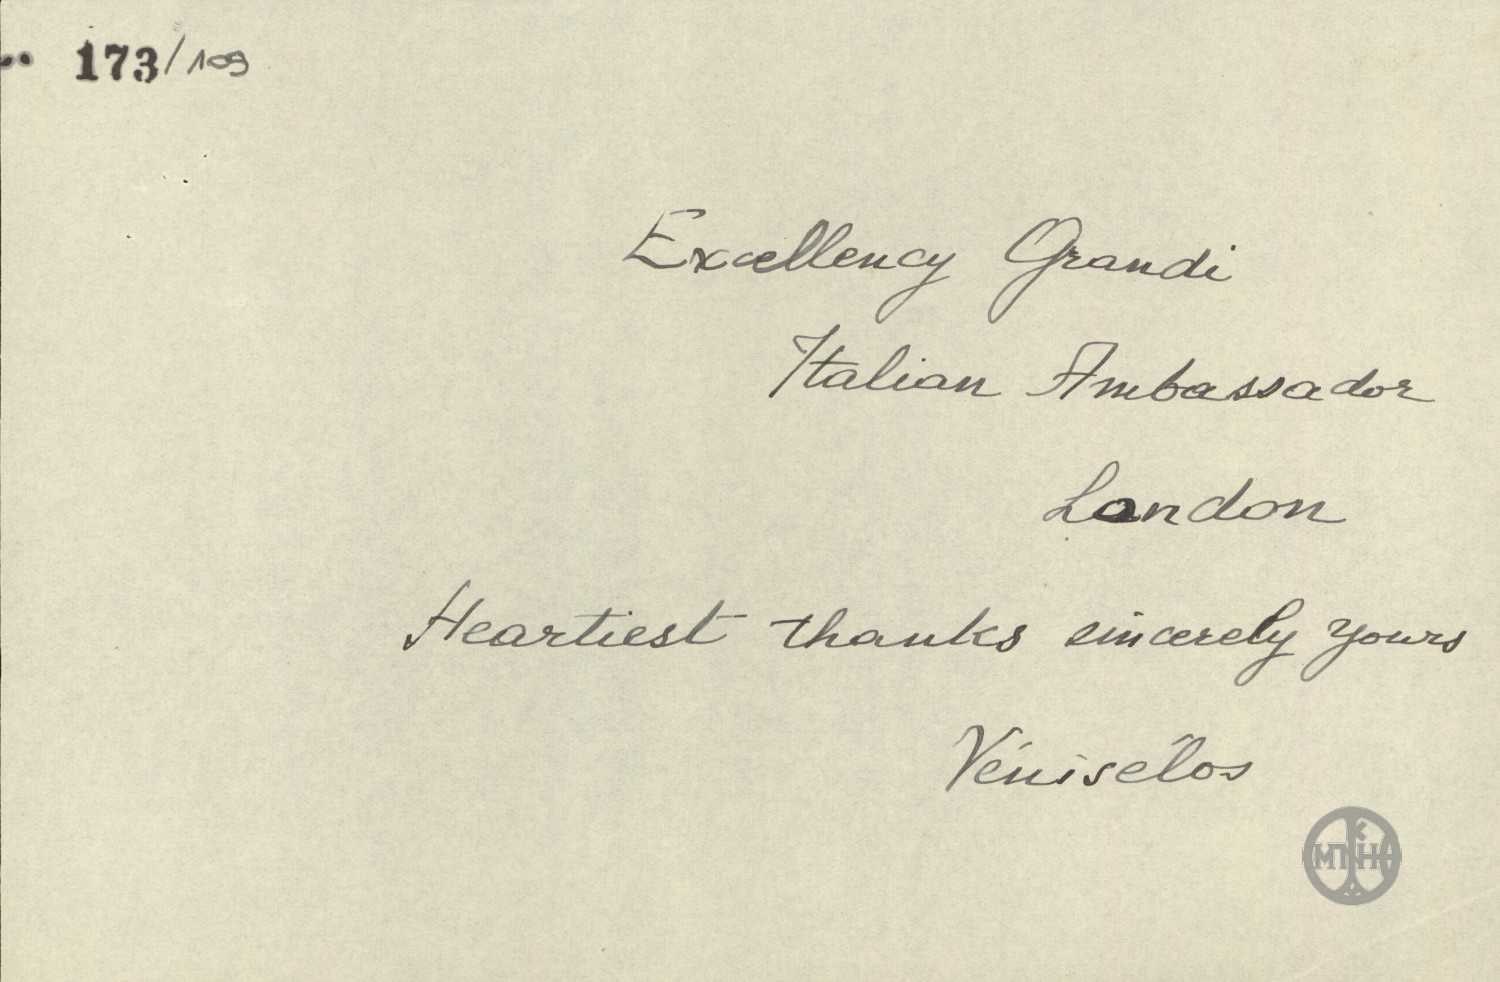 173/109
Excellency Grandi
Italian Ambassador
London
Heartiest thanks sincerely yours
Vénisélos